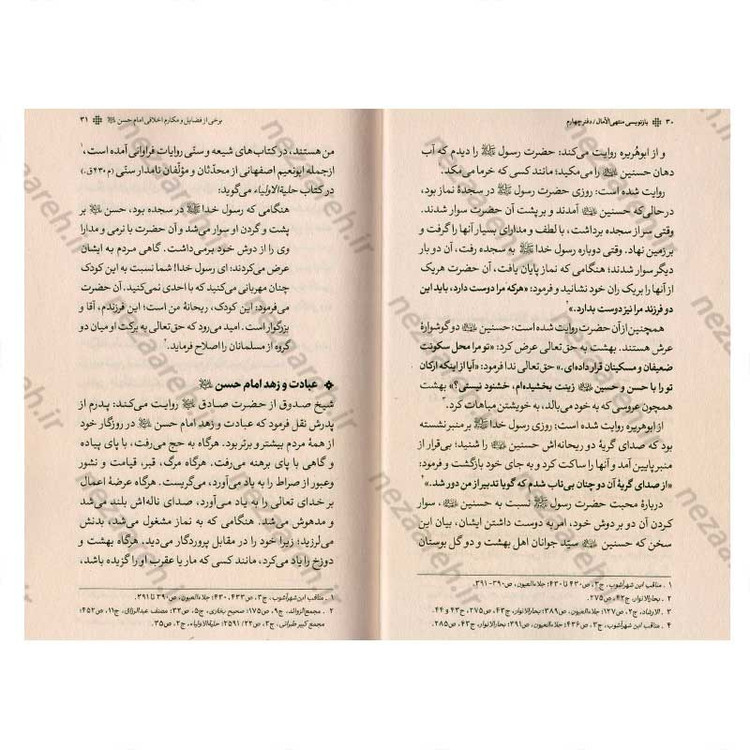 ۳۰ بازنویسی منتهی الآمال / دفتر چهارم
و از ابوهریره روایت می‌کند: حضرت رسول ﷺ را دیدم که آب
دهان حسنین را می‌مکید؛ مانند کسی که خرما می‌مکد.۱
روایت شده است: روزی حضرت رسول ﷺ در سجدۀ نماز بود،
درحالی‌که حسنین آمدند و بر پشت آن حضرت سوار شدند.
وقتی سر از سجده برداشت، با لطف و مدارای بسیار آنها را گرفت و
بر زمین نهاد. وقتی دوباره رسول خدا ﷺ به سجده رفت، آن دو بار
دیگر سوار شدند؛ هنگامی که نماز پایان یافت، آن حضرت هریک
از آنها را بر یک ران خود نشانید و فرمود: «هرکه مرا دوست دارد، باید این
دو فرزند مرا نیز دوست بدارد.»۲
همچنین از آن حضرت روایت شده است: حسنین دو گوشوارۀ
عرش هستند. بهشت به حق‌تعالی عرض کرد: «تو مرا محل سکونت
ضعیفان و مسکینان قرار داده‌ای.» حق‌تعالی ندا فرمود: «آیا از اینکه ارکان
تو را با حسن و حسین زینت بخشیده‌ام، خشنود نیستی؟» بهشت
همچون عروسی که به خود می‌بالد، به خویشتن مباهات کرد.۳
از ابوهریره روایت شده است: روزی رسول خدا ﷺ بر منبر نشسته
بود که صدای گریۀ دو ریحانه‌اش حسنین را شنید؛ بی‌قرار از
منبر پایین آمد و آنها را ساکت کرد و به جای خود بازگشت و فرمود:
«از صدای گریۀ آن دو چنان بی‌تاب شدم که گویا تدبیر از من دور شد.»۴
دربارۀ محبت حضرت رسول ﷺ نسبت به حسنین، سوار
کردن آن دو بر دوش خود، امر به دوست داشتن ایشان، بیان این
سخن که حسنین سیّد جوانان اهل بهشت و دو گل بوستان
۱ . مناقب ابن شهرآشوب، ج۳، ص۴۳۰ تا ۴۳۴؛ جلاءالعیون، ص۳۹۰-۳۹۱.
۲ . بحارالانوار، ج۴۳، ص۲۷۵.
۳ . الارشاد، ج۲، ص۱۲۷؛ جلاءالعیون، ص۳۸۹؛ بحارالانوار، ج۴۳، ص۲۷۵؛ ج۴۳ و ۴۴.
۴ . مناقب ابن شهرآشوب، ج۳، ص۴۳۶؛ جلاءالعیون، ص۳۹۱؛ بحارالانوار، ج۴۳، ص۲۸۵.
برخی از فضایل و مکارم اخلاقی امام حسن ۳۱
من هستند، در کتاب‌های شیعه و سنّی روایات فراوانی آمده است،۱
ازجمله ابونعیم اصفهانی از محدّثان و مؤلّفان نامدار سنّی (م۴۳۰ق.)
در کتاب حلیة‌الاولیاء می‌گوید:
هنگامی که رسول خدا ﷺ در سجده بود، حسن بر
پشت و گردن او سوار می‌شد و آن حضرت با نرمی و مدارا
وی را از دوش خود برمی‌داشت. گاهی مردم به ایشان
عرض می‌کردند: ای رسول خدا! شما نسبت به این کودک
چنان مهربانی می‌کنید که با احدی نمی‌کنید. آن حضرت
می‌فرمود: این کودک، ریحانۀ من است؛ این فرزندم، آقا و
بزرگوار است. امید می‌رود که حق‌تعالی به برکت او میان دو
گروه از مسلمانان را اصلاح فرماید.۲
عبادت و زهد امام حسن
شیخ صدوق از حضرت صادق روایت می‌کند: پدرم از
پدرش نقل فرمود که عبادت و زهد امام حسن در روزگار خود
از همۀ مردم بیشتر و برتر بود. هرگاه به حج می‌رفت، با پای پیاده
و گاهی با پای برهنه می‌رفت. هرگاه مرگ، قبر، قیامت و نشور
و عبور از صراط را به یاد می‌آورد، می‌گریست. هرگاه عرضۀ اعمال
بر خدای تعالی را به یاد می‌آورد، صدای ناله‌اش بلند می‌شد
و مدهوش می‌شد. هنگامی که به نماز مشغول می‌شد، بدنش
می‌لرزید؛ زیرا خود را در مقابل پروردگار می‌دید، هرگاه بهشت و
دوزخ را یاد می‌کرد، مانند کسی که مار یا عقرب او را گزیده باشد،
۱ . مناقب ابن شهرآشوب، ج۳، ص۴۳۳، ۴۳۰؛ جلاءالعیون، ص۳۹۰ تا ۳۹۱.
۲ . مجمع‌الزوائد، ج۹، ص۱۷۵؛ صحیح بخاری، ج۵، ص۳۳؛ مصنف عبدالرزاق، ج۱۱، ص۴۵۲؛
معجم کبیر طبرانی، ج۳، ص۲۲/ ۲۵۹۱؛ حلیة‌الاولیاء، ج۲، ص۳۵.
nezaareh.ir